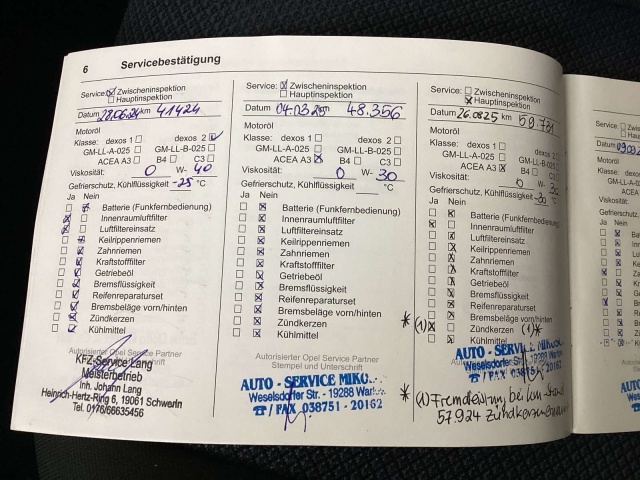 6 Servicebestätigung
Service: Zwischeninspektion
Hauptinspektion
Datum 28.06.24 km 41424
Motoröl
Klasse: dexos 1 dexos 2
GM-LL-A-025 GM-LL-B-025
ACEA A3 B4 C3
Viskosität: 0 W- 40
Gefrierschutz, Kühlflüssigkeit -25 °C
Ja Nein
Batterie (Funkfernbedienung)
Innenraumluftfilter
Luftfiltereinsatz
Keilrippenriemen
Zahnriemen
Kraftstofffilter
Getriebeöl
Bremsflüssigkeit
Reifenreparaturset
Bremsbeläge vorn/hinten
Zündkerzen
Kühlmittel
Autorisierter Opel Service Partner
KFZ-Service Lang
Meisterbetrieb
Inh. Johann Lang
Heinrich-Hertz-Ring 6, 19061 Schwerin
Tel. 0176/66635456
Service: Zwischeninspektion
Hauptinspektion
Datum 04.03.25 km 48.356
Motoröl
Klasse: dexos 1 dexos 2
GM-LL-A-025 GM-LL-B-025
ACEA A3 B4 C3
Viskosität: 0 W- 30
Gefrierschutz, Kühlflüssigkeit °C
Ja Nein
Batterie (Funkfernbedienung)
Innenraumluftfilter
Luftfiltereinsatz
Keilrippenriemen
Zahnriemen
Kraftstofffilter
Getriebeöl
Bremsflüssigkeit
Reifenreparaturset
Bremsbeläge vorn/hinten
Zündkerzen
Kühlmittel
Autorisierter Opel Service Partner
Stempel und Unterschrift
AUTO - SERVICE MIKO
Weselsdorfer Str. - 19288
☎/ FAX 038751 - 20162
Service: Zwischeninspektion
Hauptinspektion
Datum 26.08.25 km 59.731
Motoröl
Klasse: dexos 1 dexos 2
GM-LL-A-025 GM-LL-B-025
ACEA A3 B4 C3
Viskosität: 0 W- 30
Gefrierschutz, Kühlflüssigkeit -30 °C
Ja Nein
Batterie (Funkfernbedienung)
Innenraumluftfilter
Luftfiltereinsatz
Keilrippenriemen
Zahnriemen
Kraftstofffilter
Getriebeöl
Bremsflüssigkeit
Reifenreparaturset
Bremsbeläge vorn/hinten
* (1) Zündkerzen (1)*
Kühlmittel
Autorisierter Opel Service
AUTO - SERVICE
Weselsdorfer Str. - 19288
☎/ FAX 038751 - 20162
* (1) Fremdleistung bei km-Stand
57.924